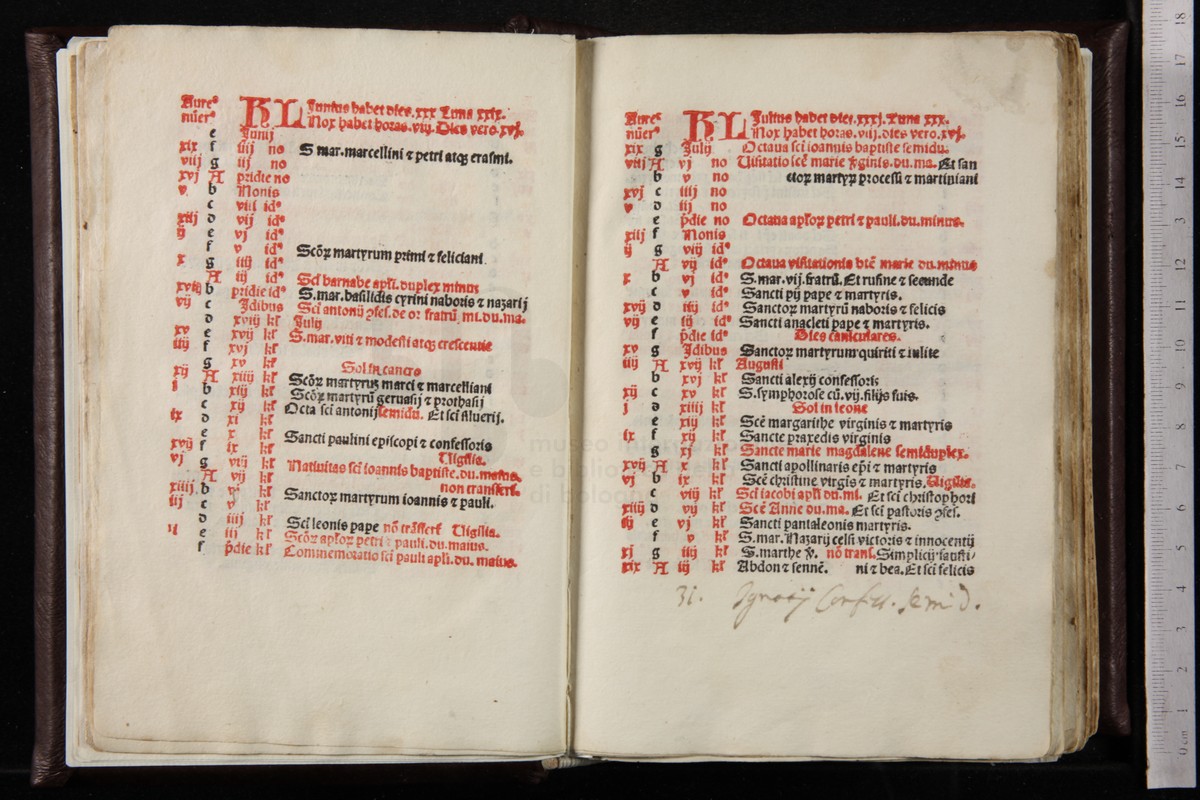 Aure⁹ KL Junius habet dies.xxx Luna xxix.
nũer⁹ Nox habet horas.viij.Dies vero.xvj.
e Junij
xix f iiij no S mar.marcellini ⁊ petri atq; erasmi.
viij g iij no
xvj A pridie no
v b Nonis
c viij id⁹
xiij d vij id⁹
ij e vj id⁹
f v id⁹ Scõꝝ martyrum primi ⁊ feliciani
x g iiij id⁹
A iij id⁹ Sci barnabe apli.duplex minus
xviij b pridie id⁹ S.mar.basilidis cyrini naboris ⁊ nazarij
vij c Idibus Sci antonij ꝯfes.de or fratrũ mi.du.ma.
d xviij kl̃ Julij
xv e xvij kl̃ S.mar.viti ⁊ modesti atq; crescentie
iiij f xvj kl̃
g xv kl̃ Sol in cancro
xij A xiiij kl̃ Scõꝝ martyrum marci ⁊ marcelliani
j b xiij kl̃ Scõꝝ martyrũ geruasij ⁊ prothasij
c xij kl̃ Octa sci antonij semidu. Et sci siluerij.
ix d xi kl̃
e x kl̃ Sancti paulini episcopi ⁊ confessoris
xvij f ix kl̃ Vigilia.
vj g viij kl̃ Natiuitas sci ioannis baptiste.du.maius.
A vij kl̃ non transfert.
xiiij b vj kl̃ Sanctoꝝ martyrum ioannis ⁊ pauli.
iij c v kl̃
d iiij kl̃ Sci leonis pape nõ trãsfert Vigilia.
e iij kl̃ Scõꝝ aploꝝ petri ⁊ pauli.du.maius.
f p̃die kl̃ Commemoratio sci pauli apli.du. maius.
Aure⁹ KL Julius habet dies.xxxj.Luna xxx.
nũer⁹ Nox habet horas.viij.dies vero.xvj.
xix g Julij Octaua sci ioannis baptiste semidu.
viij A vj no Visitatio scẽ marie v̾ginis.du.ma. Et san
b v no ctoꝝ martyꝝ processi ⁊ martiniani
xvj c iiij no
v d iij no
e p̃die no Octaua aploꝝ petri ⁊ pauli.du.minus.
xiij f Nonis
ij g viij id⁹
A vij id⁹ Octaua visitationis btẽ marie du.minus
x b vj id⁹ S.mar.vij.fratrũ.Et rufine ⁊ secunde
c v id⁹ Sancti pij pape ⁊ martyris.
xviij d iiij id⁹ Sanctoꝝ martyrũ naboris ⁊ felicis
vij e iij id⁹ Sancti anacleti pape ⁊ martyris.
f p̃die id⁹ Dies caniculares.
xv g Idibus Sanctoꝝ martyrum quiriti ⁊ iulite
iiij A xvij kl̃ Augusti
b xvj kl̃ Sancti alexij confessoris
xij c xv kl̃ S.symphorose cũ.vij.filijs suis.
j d xiiij kl̃ Sol in leone
e xiij kl̃ Scẽ margarithe virginis ⁊ martyris
ix f xij kl̃ Sancte praxedis virginis
g xj kl̃ Sancte marie magdalene semiduplex.
xvij A x kl̃ Sancti apollinaris epi ⁊ martyris
vj b ix kl̃ Scẽ christine virgis ⁊ martyris.Vigilia.
c viij kl̃ Sci iacobi apli du.mi. Et sci christophori
xiiij d vij kl̃ Scẽ Anne du.ma. Et sci pastoris ꝯfes.
iij e vj kl̃ Sancti pantaleonis martyris.
f v kl̃ S.mar.Nazarij celsi victoris ⁊ innocentij
xj g iiij kl̃ S.marthe v̾. nõ trans.Simplicij fausti/
xix A iij kl̃ Abdon ⁊ sennẽ. ni ⁊ bea.Et sci felicis
31. Ignatij Confess. semid.